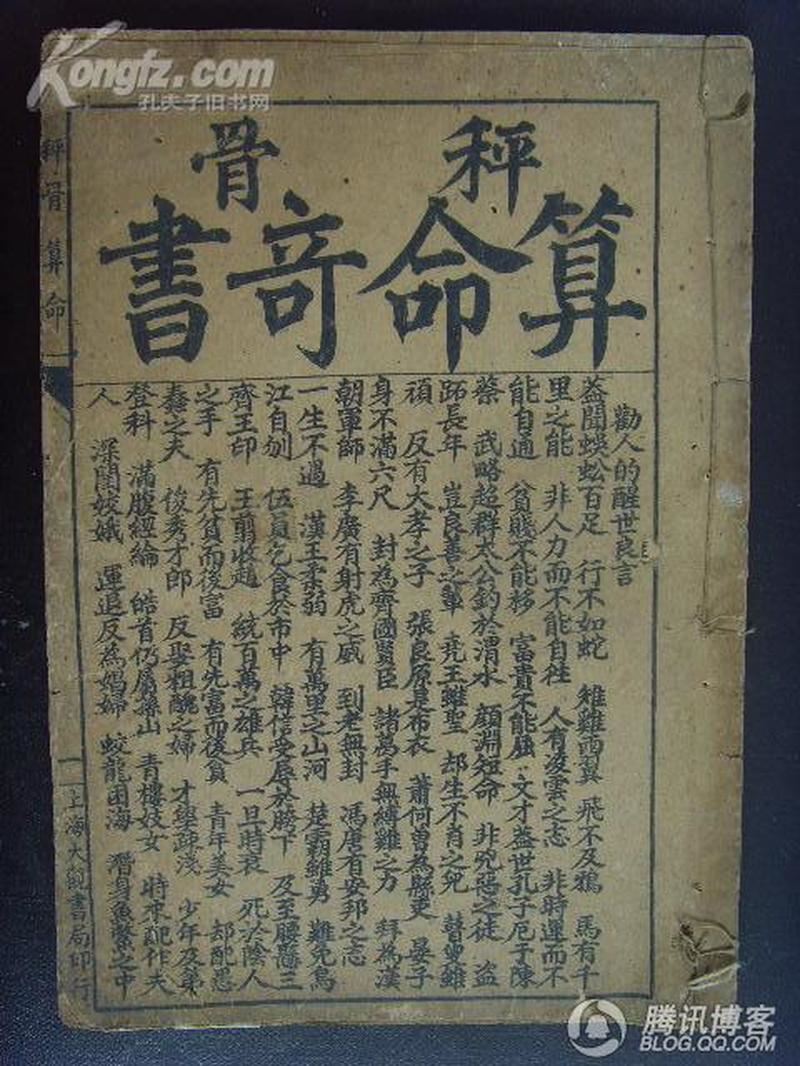 Kongfz.com
孔夫子旧书网
秤骨
算命竒書
勸人的醒世良言
益聞蜈蚣百足 行不如蛇 雉雞両翼 飛不及鴉 馬有千
里之能 非人力而不能自往 人有凌雲之志 非時運而不
能自通 貧賤不能移 富貴不能屈 文才益世孔子厄于陳
蔡 武略超群太公釣於渭水 顏淵短命 非兇惡之徒 盗
跖長年 豈良善之輩 堯王雖聖 却生不肖之兒 瞽叟雖
頑 反有大孝之子 張良原是布衣 蕭何曾為縣吏 晏子
身不滿六尺 封為齊國賢臣 諸葛手無縛雞之力 拜為漢
朝軍師 李廣有射虎之威 到老無封 馮唐有安邦之志
一生不過 漢王柔弱 有萬里之山河 楚霸雄勇 難免烏
江自刎 伍員乞食於市中 韓信受辱於胯下 及至腰懸三
齊王印 王翦收趙 統百萬之雄兵 一旦時衰 死於陰人
之手 有先貧而後富 有先富而後貧 青年美女 却配愚
蠢之夫 俊秀才郎 反娶粗醜之婦 才學疎淺 少年及第
登科 滿腹經綸 皓首仍屬孫山 青樓妓女 時來配作夫
人 深閨姣娥 運退反為娼婦 蛟龍困海 潛身魚鱉之中
秤骨算命
一
上海大觀書局印行
腾讯博客
BLOG.QQ.COM